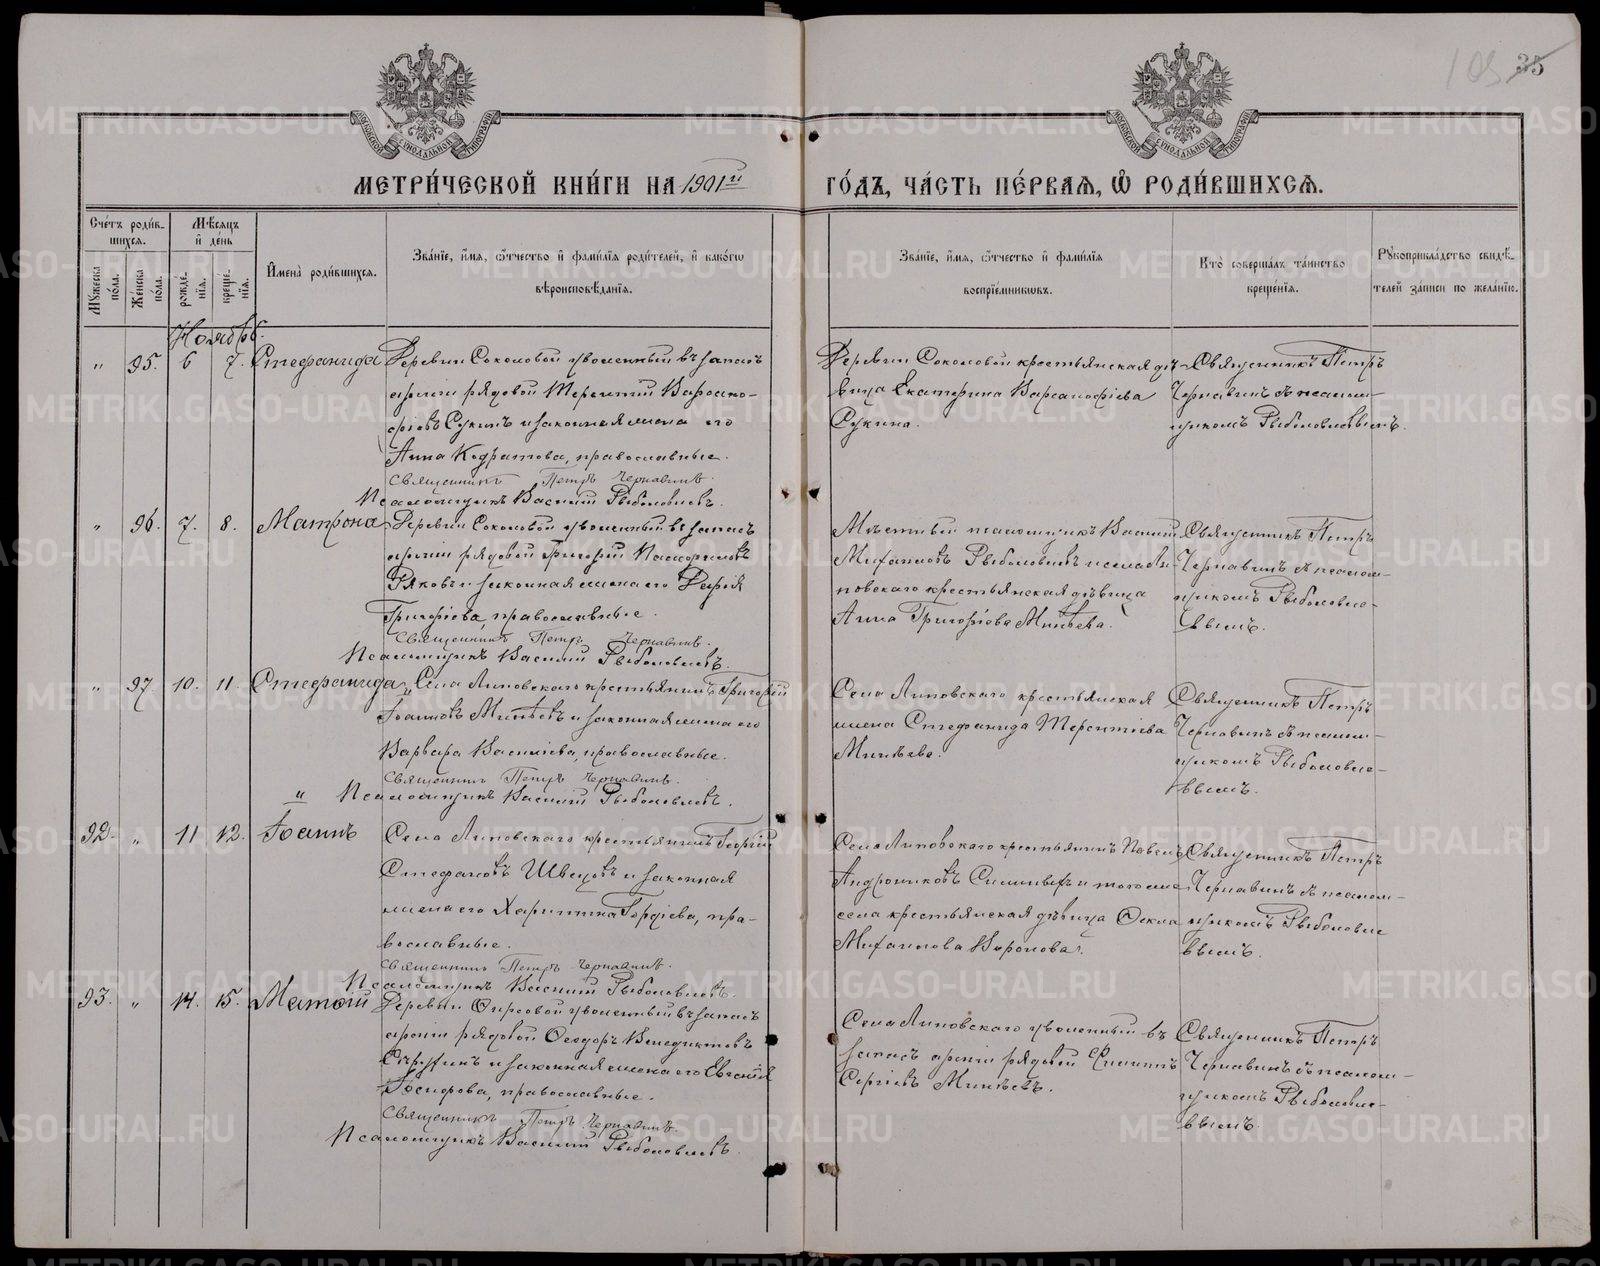 105 35
МОСКОВСКОЙ СУНОДАЛЬНОЙ ТИПОГРАФІИ
МОСКОВСКОЙ СУНОДАЛЬНОЙ ТИПОГРАФІИ
МЕТРИ́ЧЕСКОЙ КНИ́ГИ НА 1901й ГО́ДЪ, ЧА́СТЬ ПЕ́РВАѦ, Ѡ҆ РОДИ́ВШИХСѦ.
Сче́тъ роди́в-
шихсѧ.
Мѣ́сѧцъ
и҆ де́нь
Мꙋ́жеска
по́ла.
Же́нска
по́ла.
рожде́-
нїѧ.
креще́-
нїѧ.
И҆мена̀ роди́вшихсѧ.
Зва́нїе, и҆́мѧ, ѻ҆́тчество и҆ фами́лїѧ роди́телей, и҆ како́гѡ
вѣроисповѣ́данїѧ.
Зва́нїе, и҆́мѧ, ѻ҆́тчество и҆ фами́лїѧ
воспрїе́мникѡвъ.
Кто̀ соверша́лъ та́инство
креще́нїѧ.
Рꙋкоприкла́дство свидѣ́-
телей за́писи по жела́нїю.
Ноябрь.
" 95. 6 7. Стефанида Деревни Соколовой уволенный въ запасъ
армiи рядовой Терентiй Варсано-
фiевъ Сукинъ и законная жена его
Анна Кодратова, православные.
Священникъ Петръ Чернавинъ.
Псаломщикъ Василiй Рыболовлевъ.
Деревни Соколовой крестьянская дѣ-
вица Екатерина Варсанофiева
Сукина.
Священникъ Петръ
Чернавинъ съ псалом-
щикомъ Рыболовлевымъ.
" 96. 7. 8. Матрона Деревни Соколовой уволенный въ запасъ
армiи рядовой Григорiй
Ряковъ и законная жена его
Григорiева, православные.
Священникъ Петръ Чернавинъ.
Псаломщикъ Василiй Рыболовлевъ.
Мѣстный псаломщикъ Василiй
Михаиловъ Рыболовлевъ и села Ли-
повского крестьянская дѣвица
Анна Григорiева Минѣева.
Священникъ Петръ
Чернавинъ съ псалом-
щикомъ Рыболовле-
вымъ.
" 97 10. 11. Стефанида Села Липовского крестьянинъ Григорiй
Iоанновъ Минѣевъ и законная жена его
Варвара Василiева, православные.
Священникъ Петръ Чернавинъ.
" Псаломщикъ Василiй Рыболовлевъ.
Села Липовского крестьянская
жена Стефанида Терентiева
Минѣева.
Священникъ Петръ
Чернавинъ съ псалом-
щикомъ Рыболовле-
вымъ.
92. " 11 12. Iоаннъ Села Липовского крестьянинъ Георгiй
Стефановъ Швецовъ и законная
жена его Харитина Гордiева, пра-
вославные.
Священникъ Петръ Чернавинъ.
Псаломщикъ Василiй Рыболовлевъ.
Села Липовского крестьянинъ Павелъ
Андрониковъ и того же
села крестьянская дѣвица Ѳекла
Михаилова
Священникъ Петръ
Чернавинъ съ псалом-
щикомъ Рыболовле
вымъ.
93. " 14. 15. Матѳiй Деревни Фирсовой уволенный въ запасъ
армiи рядовой Ѳеодоръ Венедиктовъ
и законная жена его Евгенiя
Iосифова, православные.
Священникъ Петръ Чернавинъ.
Псаломщикъ Василiй Рыболовлевъ.
Села Липовского уволенный въ
запасъ армiи рядовой Филиппъ
Сергiевъ Минѣевъ.
Священникъ Петръ
Чернавинъ съ псалом-
щикомъ Рыболовле-
вымъ.
METRIKI.GASO-URAL.RU